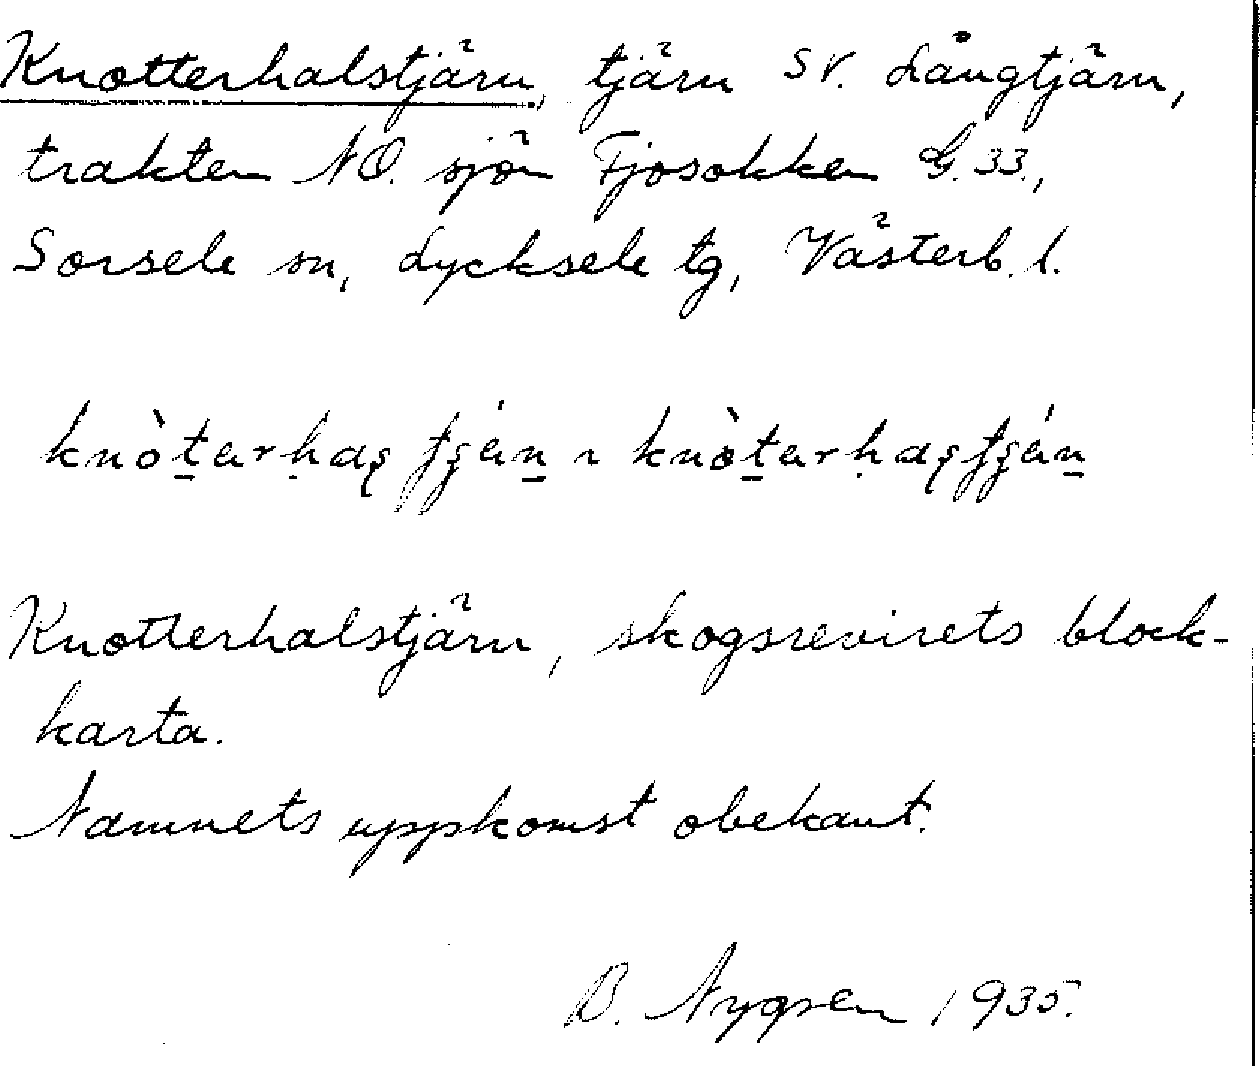 Knotterhalstjärn, tjärn SV. Långtjärn,
trakten NO. sjön Fjosokken G. 33.,
Sorsele sn, Lycksele tg, Västerb. l.
Knotterhalstjärn, skogsrevirets block-
karta.
Namnets uppkomst obekant.
B. Nygren 1935.